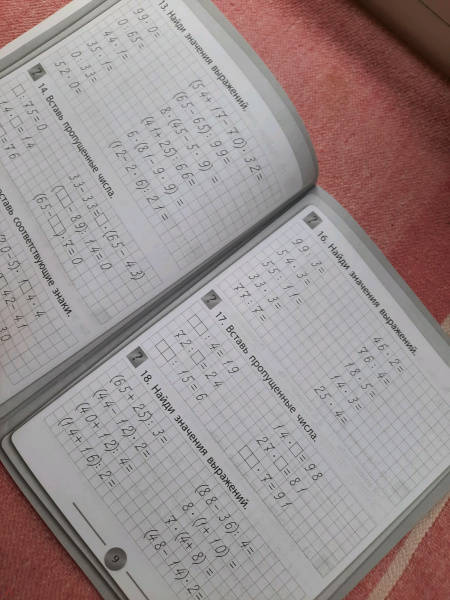 13. Найди значения выражений.
99·0=
0·65=
44·1=
35·1=
0:33=
52·0=
(54+17-70)·32=
(65-65):99=
8·(45-5·9)=
(41+25):66=
6·(81-9·9)=
(12-2·6):21=
2
14. Вставь пропущенные числа.
□:75=0
4·□=14
=76
33-33=□·(65-43)
(□·89):14=0
(65-□)·7=0
соответствующие знаки.
4·4
42 41
30
2
16. Найди значения выражений.
99:3=
54:3=
55:11=
33·3=
77:7=
46·2=
76:4=
18·5=
14·3=
25·4=
2
17. Вставь пропущенные числа.
□:4=19
72:□=24
□:15=6
14·□=98
27·□=81
□·7=91
2
18. Найди значения выражений.
(65+25):3=
(44-12):2=
(40+12):4=
(14+16):2=
(88-36):4=
8·(1+10)=
7·(4+8)=
(48-14):2=
9